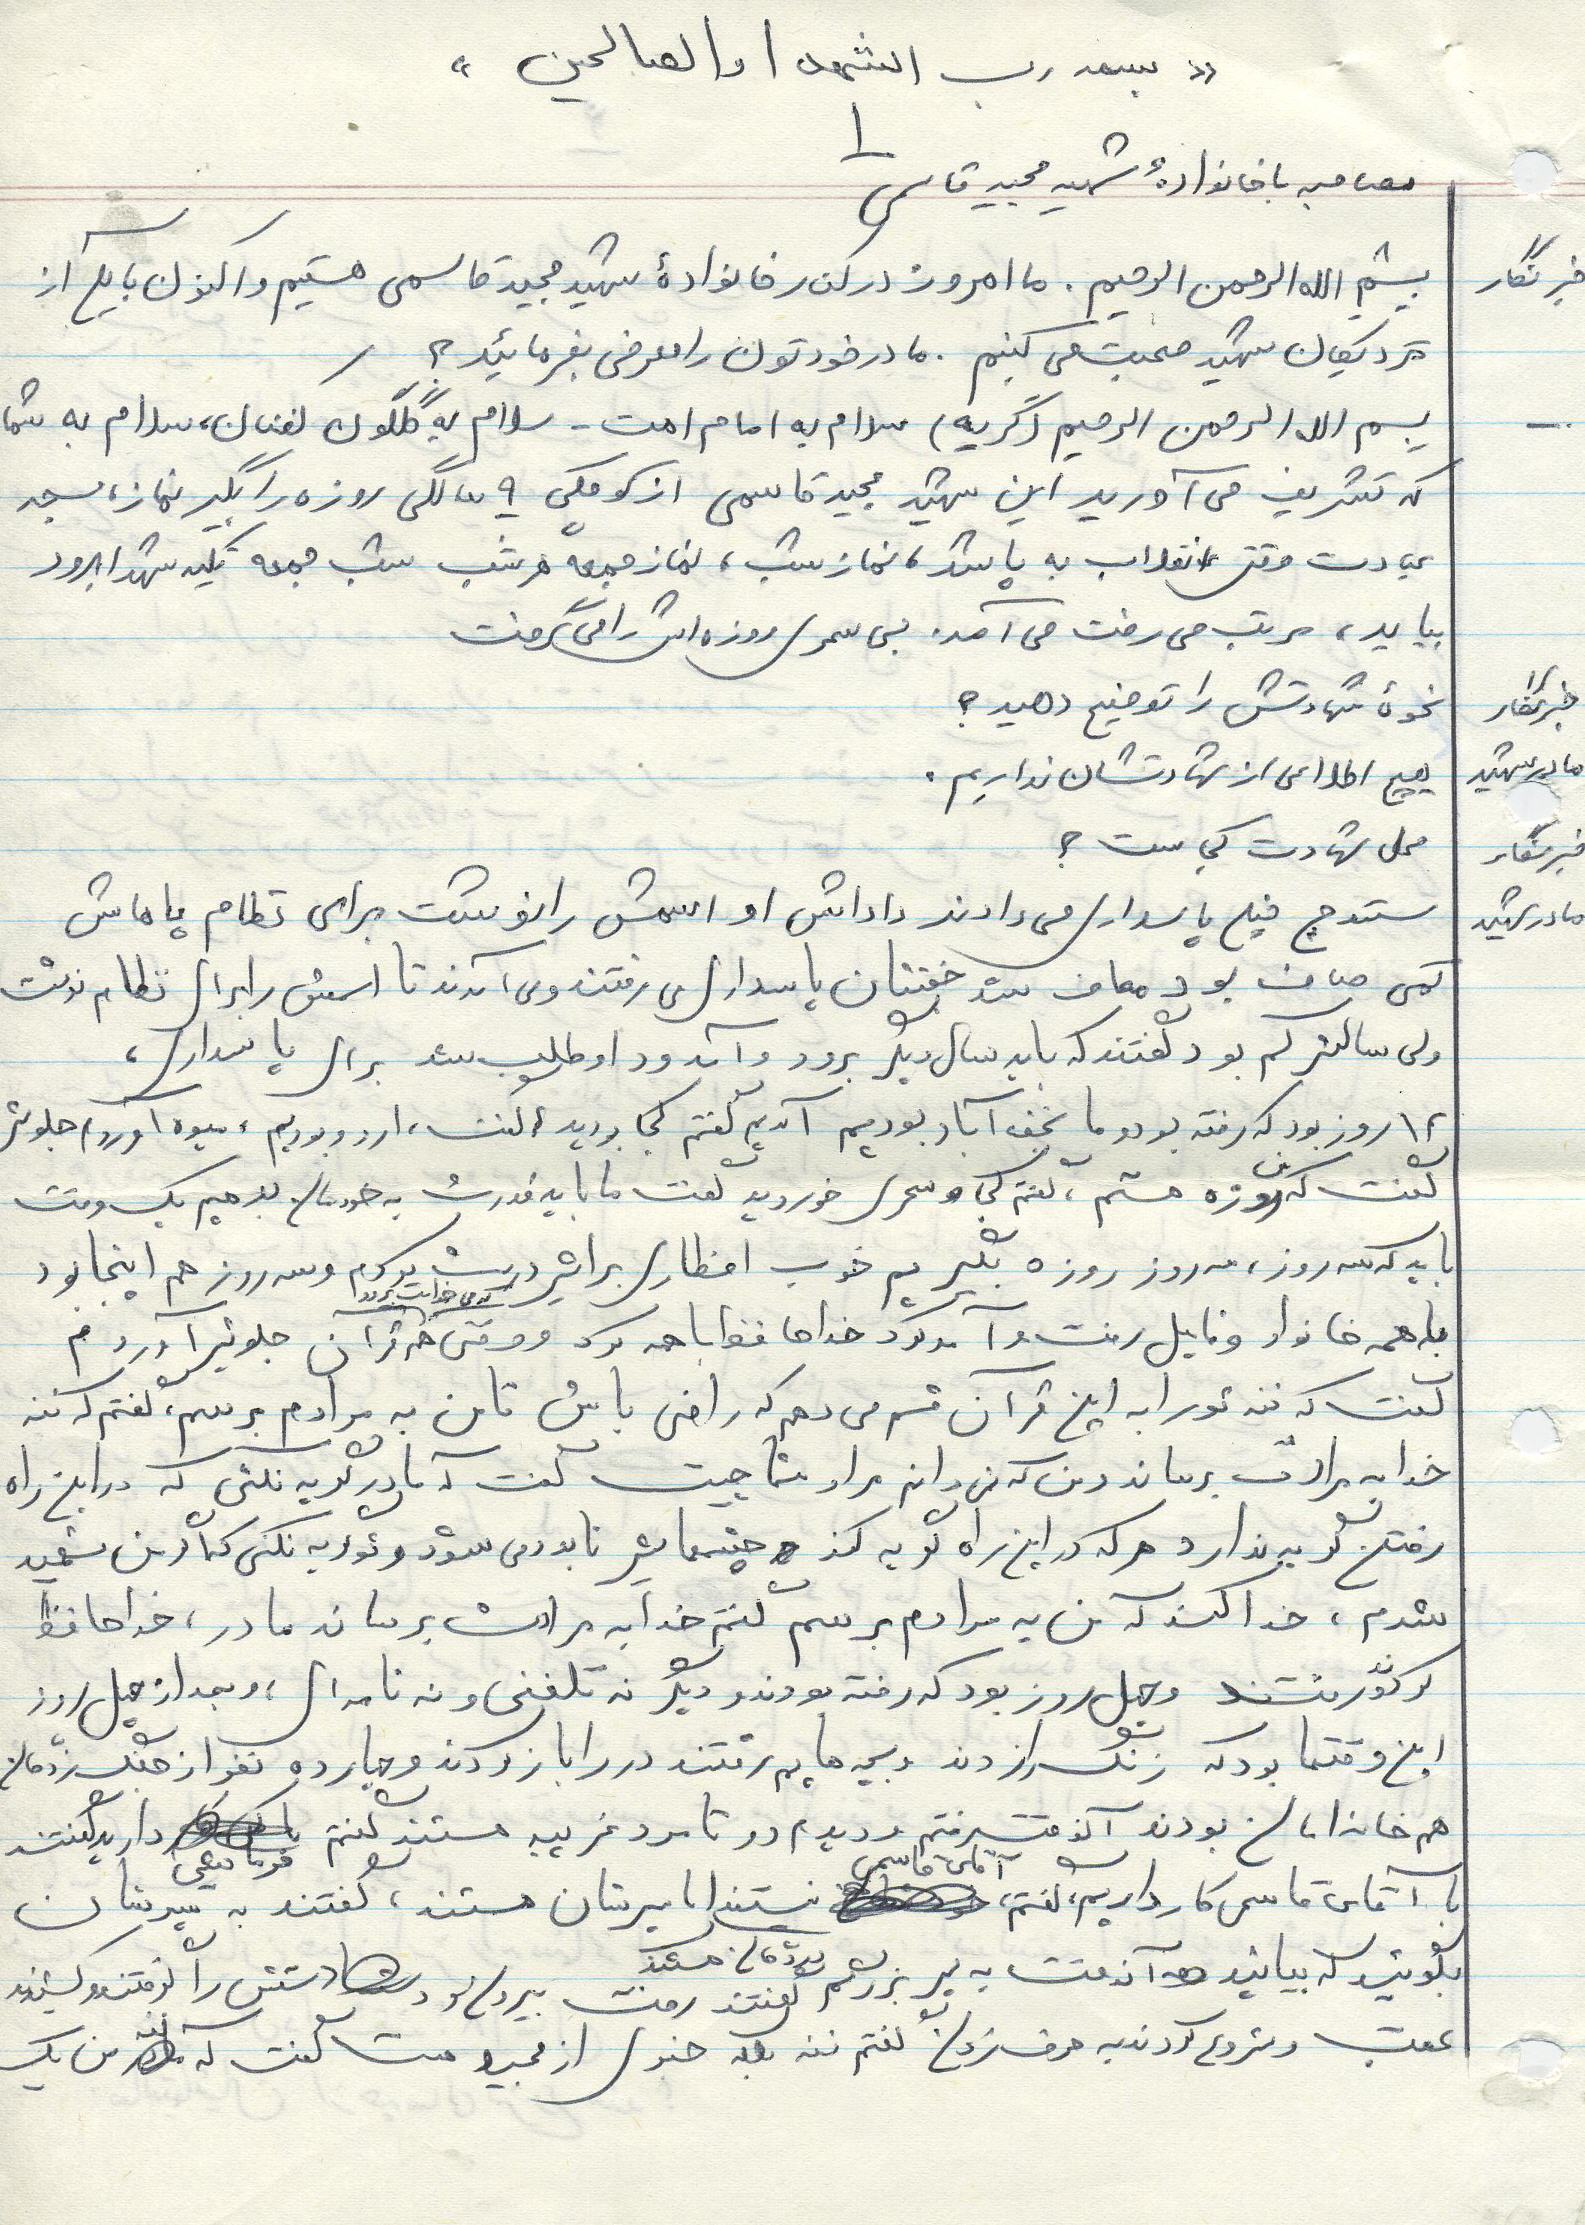 « بسمه رب الشهدا والصالحین »
۱
مصاحبه با خانوادهٔ شهید مجید قاسمی
خبرنگار بسم الله الرحمن الرحیم. ما امروز در کنار خانوادهٔ شهید مجید قاسمی هستیم و اکنون با یکی از
نزدیکان شهید صحبت می کنیم. مادر خودتون را معرفی بفرمائید؟
بسم الله الرحمن الرحیم (گریه) سلام به امام امت - سلام به گلگون کفنان، سلام به شما
که تشریف می آورید این شهید مجید قاسمی از کوچکی ۹ سالگی روزه را بگیر نماز، مسجد
عبادت وقتی انقلاب به پا شد، نماز شب، نماز جمعه هر شب شب جمعه تکیه شهدا برود
بیاید، مرتب می رفت می آمد. بی سحری روزه اش را می گرفت
خبرنگار نحوهٔ شهادتش را توضیح دهید؟
مادر شهید هیچ اطلاعی از شهادتشان نداریم.
خبرنگار محل شهادت کجاست؟
مادر شهید سنندج خیلی پاسداری می دادند داداش او اسمش را نوشت برای نظام پاهاش
کمی صاف بود معاف شد پاسداری می رفتند و می آمدند تا اسمش را برای نظام نوشت
ولی سالش کم بود گفتند که باید سال دیگر برود و آمد و داوطلب شد برای پاسداری،
۱۲ روز بود که رفته بود و ما نجف آباد بودیم آمدیم گفتم کجا بودید، گفت، اردو بودیم، میوه آوردم جلوش
گفت که من روزه هستم، گفتم کجا سحری خوردید گفت ما باید قدرت به خودمان بدهیم یک وقت
باید که سه روز، سه روز روزه بگیریم خوب افطاری برایش درست کردم و سه روز هم اینجا بود
با همه خانواده و فامیل رفت و آمد کرد خداحافظی با همه کرد و وقتی که می خواست برود قرآن جلوش آوردم
گفت که ننه تو را به این قرآن قسم می دهم که راضی باش تا من به مرادم برسم، گفتم که ننه
خدا به مرادت برساند و من که نمی دانم مراد شما چیست گفت که مادر گریه نکنی که در این راه
رفتن گریه ندارد هر که در این راه گریه کند چشمهایش نابود می شود و گریه نکنی که اگر من شهید
شدم، خدا کند که من به مرادم برسم گفتم خدا به مرادت برساند مادر، خداحافظ
کرد و رفتند و چهل روز بود که رفته بودند و دیگر نه تلفنی و نه نامه ای، و بعد از چهل روز
این وقتها بود که زنگ را زدند و بچه هایم رفتند در را باز کردند و چهارده نفر از جنگ زدگان
هم خانه امان بودند آنوقت رفتم و دیدم دو تا مرد غریبه هستند گفتم فرمایشی دارید گفتند
با آقای قاسمی کار داریم، گفتم، آقای قاسمی نیستند اما پسرشان هستند، گفتند به پسرشان
بگوئید که بیایند آنوقت به پسر بزرگم گفتند رفت بیرون دستش را گرفتند و کشیدند
عقب و شروع کردند به حرف زدن گفتم ننه خبری از مجید گفت که ننه من یک